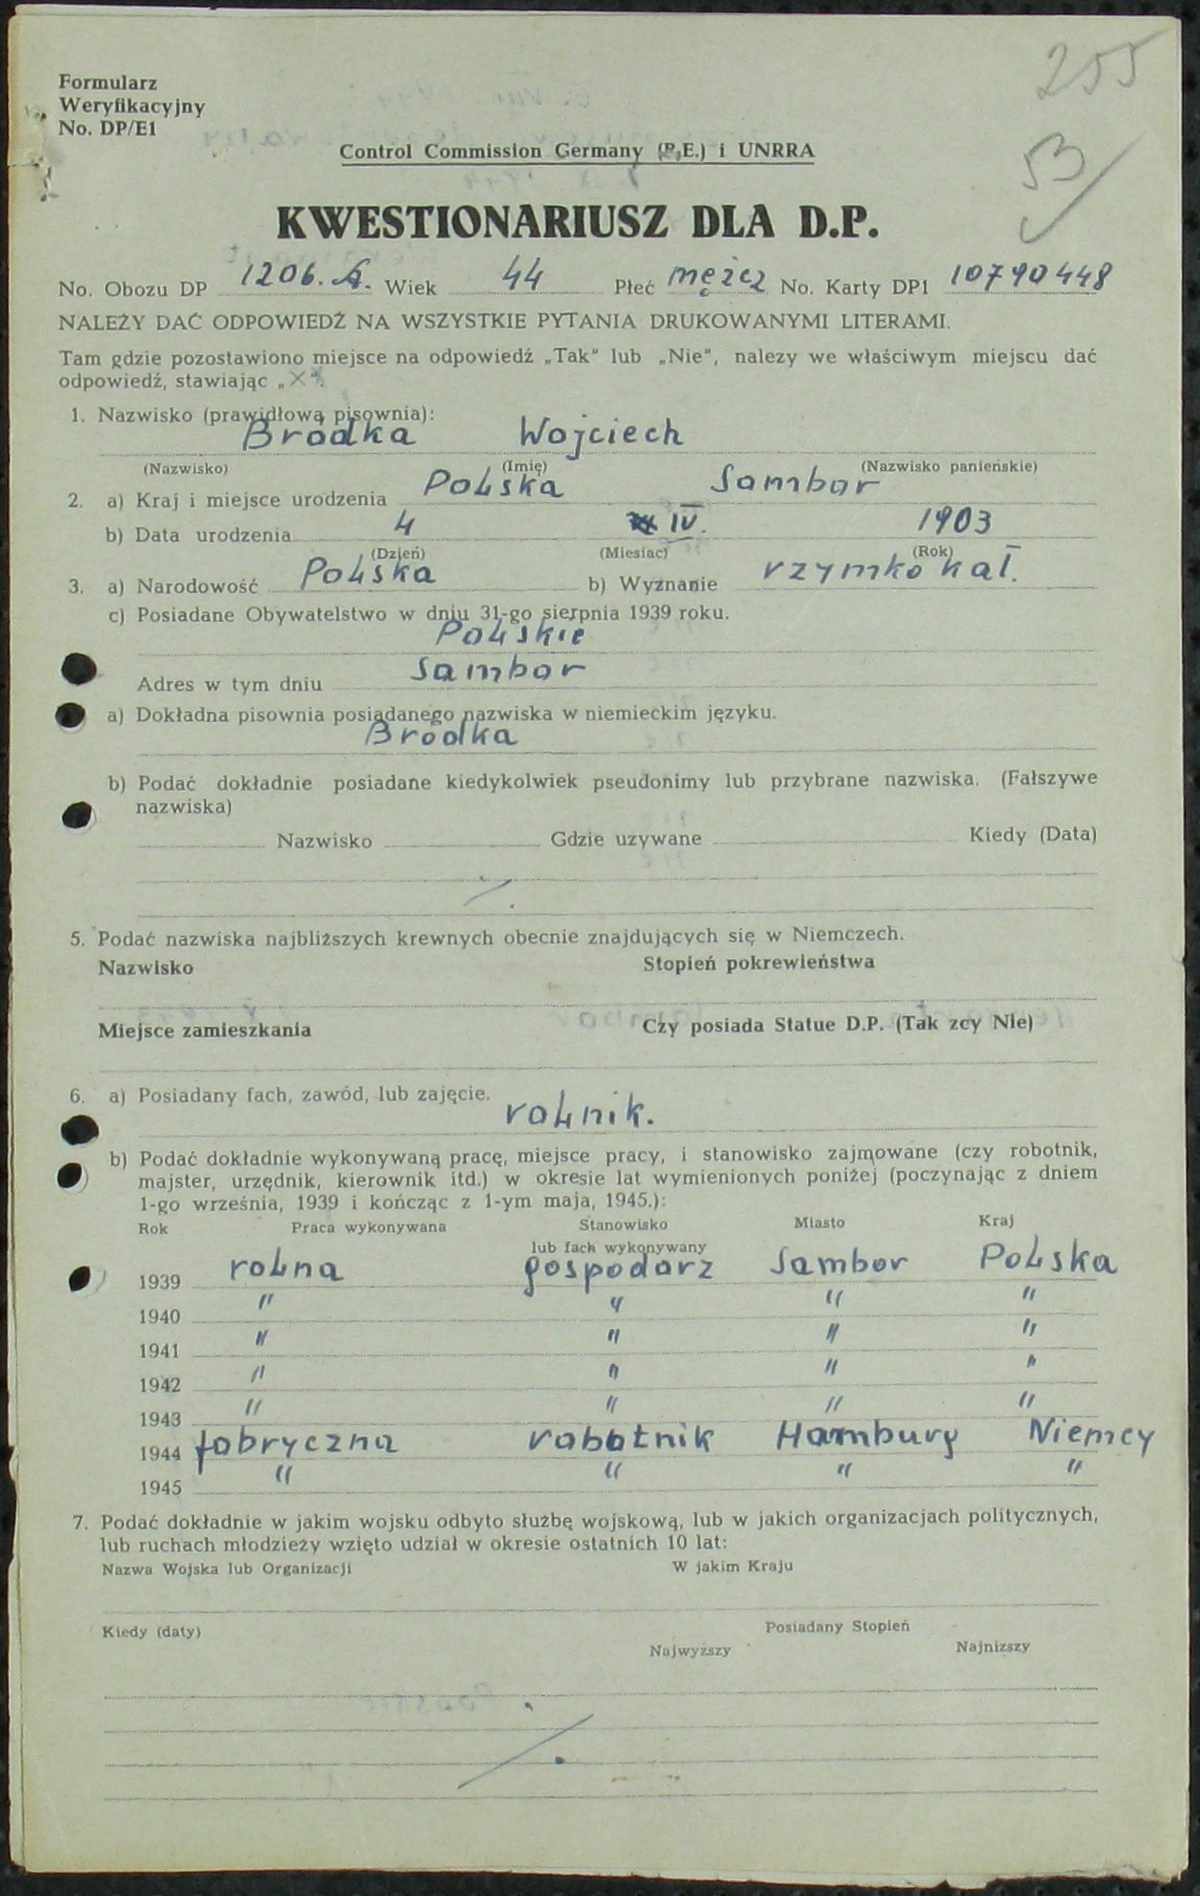 255
Formularz
Weryfikacyjny
No. DP/E1
53
Control Commission Germany (B.E.) i UNRRA
KWESTIONARIUSZ DLA D.P.
No. Obozu DP 1206. A. Wiek 44 Płeć mężcz No. Karty DP1 10790448
NALEŻY DAĆ ODPOWIEDŹ NA WSZYSTKIE PYTANIA DRUKOWANYMI LITERAMI.
Tam gdzie pozostawiono miejsce na odpowiedź „Tak" lub „Nie", nalezy we właściwym miejscu dać
odpowiedź, stawiając „X".
1. Nazwisko (prawidłową pisownia):
Bródka Wojciech
(Nazwisko) (Imię) (Nazwisko panieńskie)
2. a) Kraj i miejsce urodzenia Polska Sambor
b) Data urodzenia 4 IV. 1903
(Dzień) (Miesiąc) (Rok)
3. a) Narodowość Polska b) Wyznanie rzymko kat.
c) Posiadane Obywatelstwo w dniu 31-go sierpnia 1939 roku.
Polskie
Adres w tym dniu Sambor
a) Dokładna pisownia posiadanego nazwiska w niemieckim języku.
Bródka
b) Podać dokładnie posiadane kiedykolwiek pseudonimy lub przybrane nazwiska. (Fałszywe
nazwiska)
Nazwisko Gdzie uzywane Kiedy (Data)
5. Podać nazwiska najbliższych krewnych obecnie znajdujących się w Niemczech.
Nazwisko Stopień pokrewieństwa
Miejsce zamieszkania Czy posiada Statue D.P. (Tak zcy Nie)
6. a) Posiadany fach, zawód, lub zajęcie.
rolnik.
b) Podać dokładnie wykonywaną pracę, miejsce pracy, i stanowisko zajmowane (czy robotnik,
majster, urzędnik, kierownik itd.) w okresie lat wymienionych poniżej (poczynając z dniem
1-go września, 1939 i kończąc z 1-ym maja, 1945.):
Rok Praca wykonywana Stanowisko Miasto Kraj
lub fach wykonywany
1939 rolna gospodarz Sambor Polska
1940 " " " "
1941 " " " "
1942 " " " "
1943 " " " "
1944 fabryczna robotnik Hamburg Niemcy
1945 " " " "
7. Podać dokładnie w jakim wojsku odbyto służbę wojskową, lub w jakich organizacjach politycznych,
lub ruchach młodzieży wzięto udział w okresie ostatnich 10 lat:
Nazwa Wojska lub Organizacji W jakim Kraju
Kiedy (daty) Posiadany Stopień
Najwyższy Najniższy